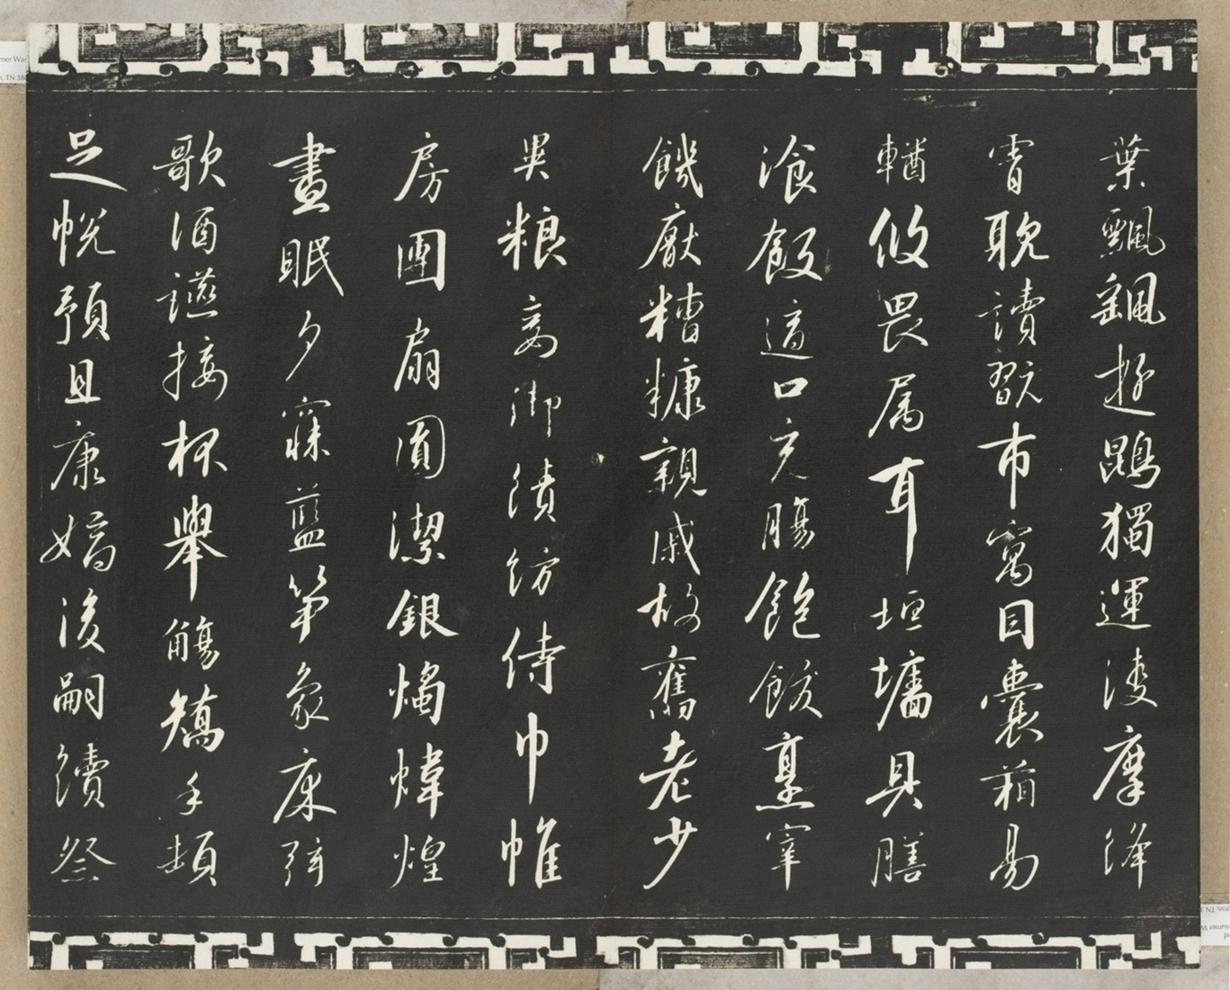 葉飄颻遊鵾獨運凌摩絳
霄耽讀翫市寓目囊箱易
輶攸畏属耳垣墻具膳
飡飯適口充腸飽飫烹宰
饑厭糟糠親戚故舊老少
異粮妾御績紡侍巾帷
房團扇圓潔銀燭煒煌
晝眠夕寐藍笋象床弦
歌酒讌接杯舉觴矯手頓
足悅預且康嫡後嗣續祭